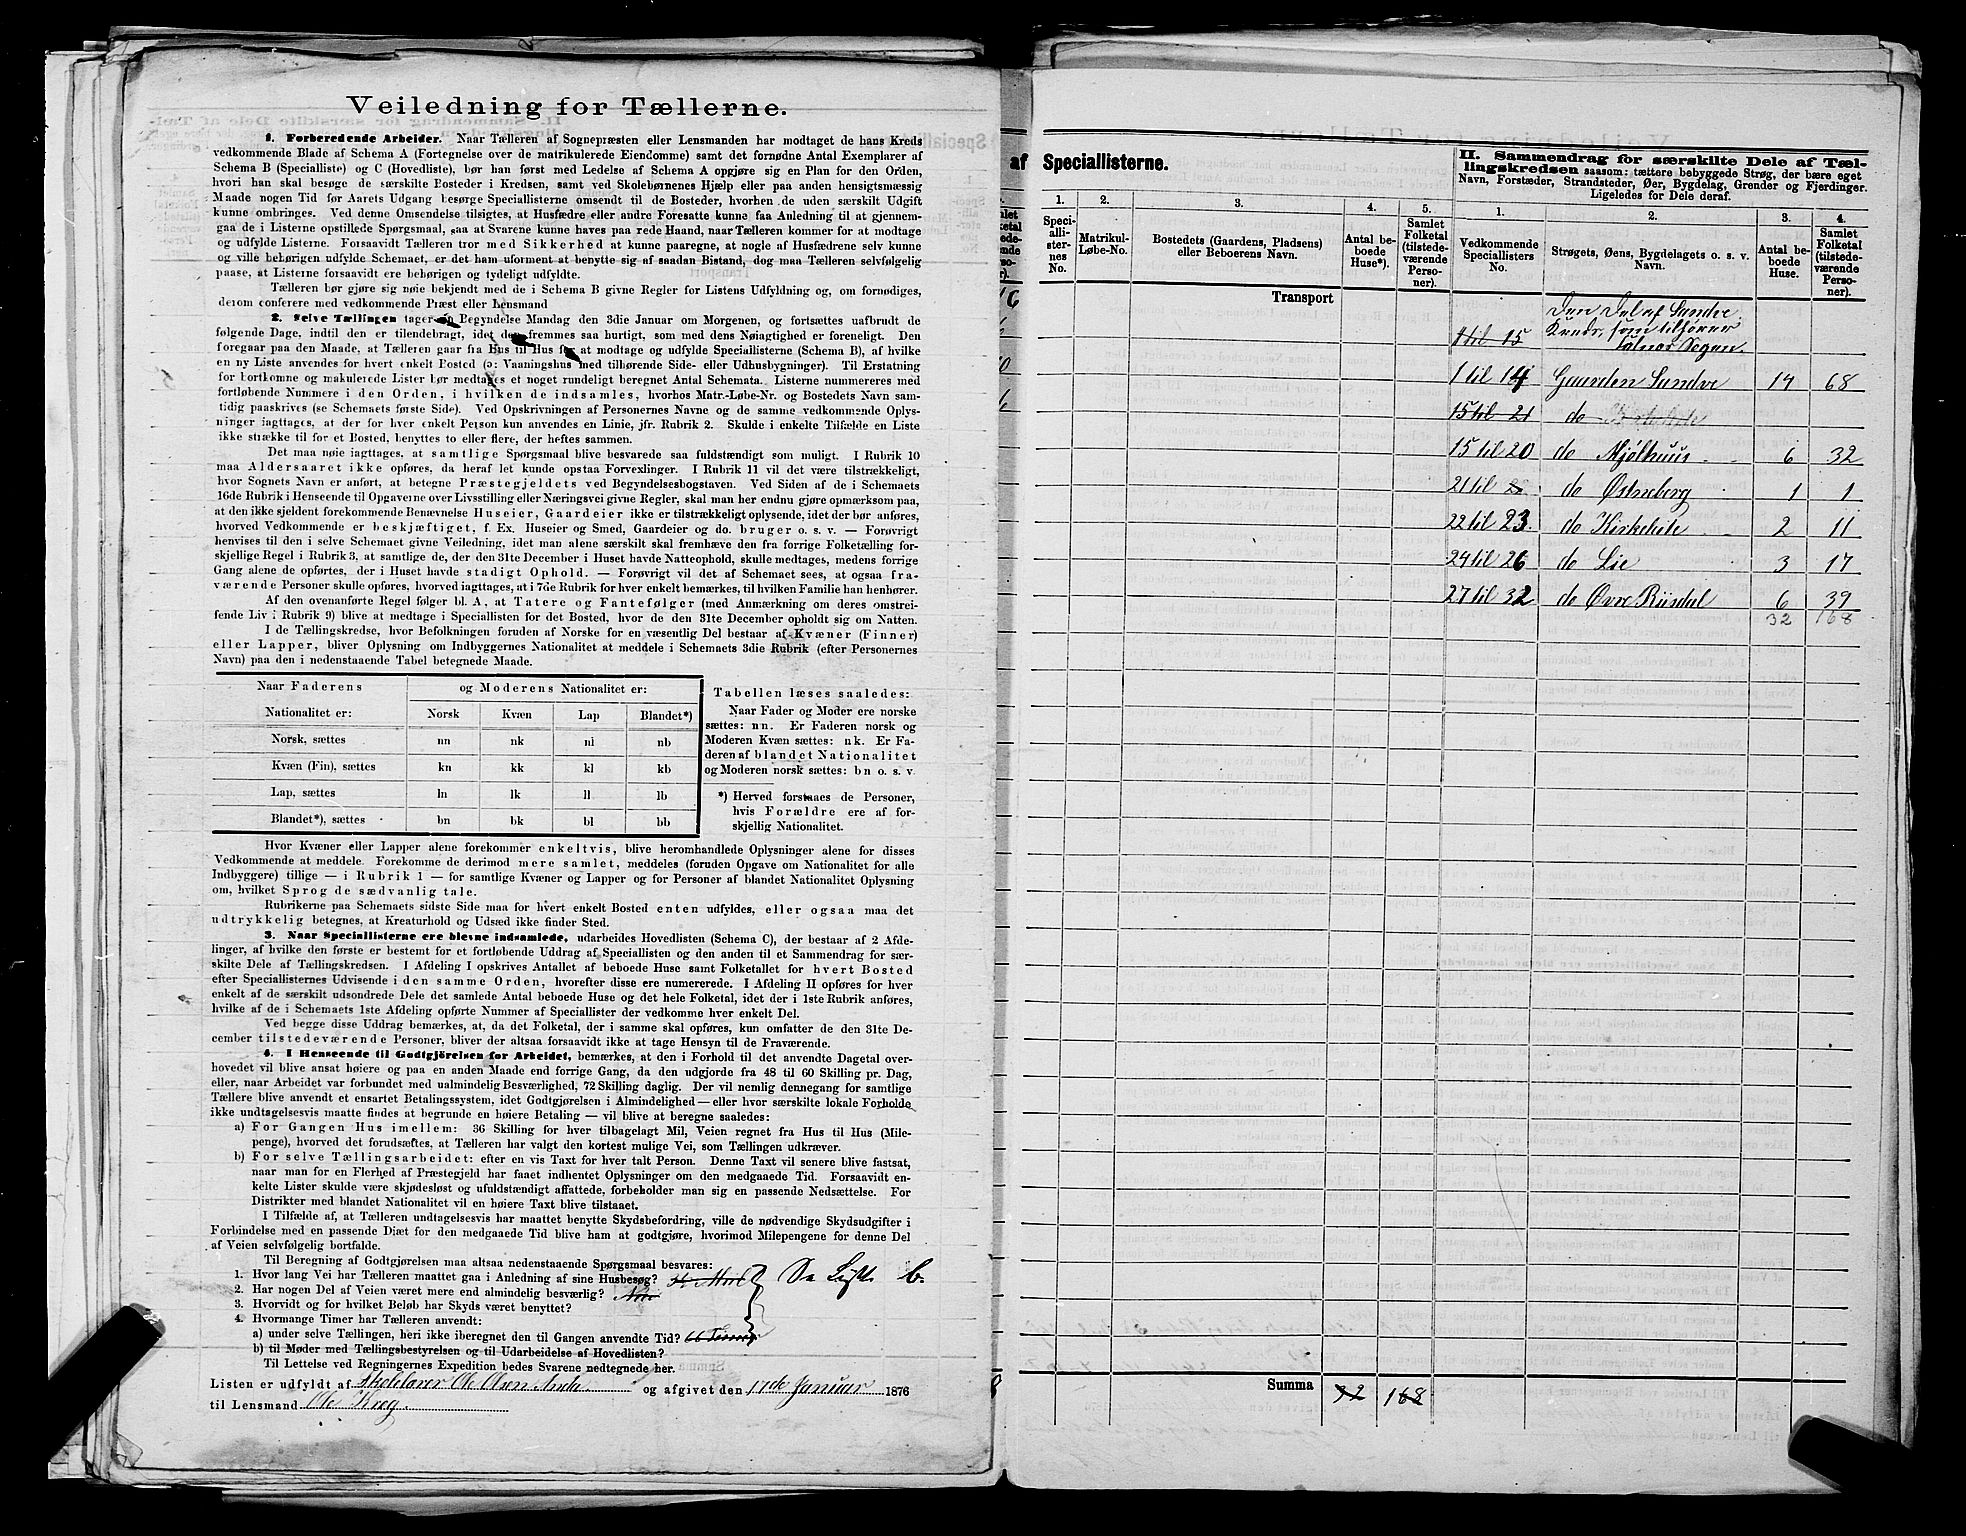 Veiledning for Tællerne.
1. Forberedende Arbeider. Naar Tælleren af Sognepræsten eller Lensmanden har modtaget de hans Kreds
vedkommende Blade af Schema A (Fortegnelse over de matrikulerede Eiendomme) samt det fornødne Antal Exemplarer af
Schema B (Specialliste) og C (Hovedliste), bør han først med Ledelse af Schema A opgjøre sig en Plan for den Orden,
hvori han skal besøge de særskilte Bosteder i Kredsen, samt ved Skolebørnenes Hjælp eller paa anden hensigtsmæssig
Maade nogen Tid før Aarets Udgang besørge Speciallisterne omsendt til de Bosteder, hvorhen de uden særskilt Udgift
kunne ombringes. Ved denne Omsendelse tilsigtes, at Husfædre eller andre Foresatte kunne faa Anledning til at gjennem-
gaa de i Listerne opstillede Spørgsmaal, saa at Svarene kunne haves paa rede Haand, naar Tælleren kommer for at modtage
og udfylde Listerne. Forsaavidt Tælleren tror med Sikkerhed at kunne paaregne, at nogle af Husfædrene selv kunne
og ville behørigen udfylde Schemaet, er det ham uforment at benytte sig af saadan Bistand, dog maa Tælleren selvfølgelig
paase, at Listerne forsaavidt ere behørigen og tydeligt udfyldte.
Tælleren bør gjøre sig nøie bekjendt med de i Schema B givne Regler for Listens Udfyldning og, om fornødiges,
derom conferere med vedkommende Præst eller Lensmand
2. Selve Tællingen tager sin Begyndelse Mandag den 3die Januar om Morgenen, og fortsættes uafbrudt de
følgende Dage, indtil den er tilendebragt, idet den fremmes saa hurtigt, som med dens Nøiagtighed er foreneligt. Den
foregaar paa den Maade, at Tælleren gaar fra Hus til Hus for at modtage og udfylde Speciallisterne (Schema B), af hvilke
en ny Liste anvendes for hvert enkelt Bosted (ɔ: Vaaningshus med tilhørende Side- eller Udhusbygninger). Til Erstatning
for bortkomne og makulerede Lister bør medtages et noget rundeligt beregnet Antal Schemata. Listerne nummereres med
fortløbende Nummere i den Orden, i hvilken de indsamles, hvorhos Matr.-Løbe-Nr. og Bostedets Navn sam-
tidig paaskrives (se Schemaets første Side). Ved Opskrivningen af Personernes Navne og de samme vedkommende Oplys-
ninger iagttages, at der for hver enkelt Person kun anvendes en Linie, jfr. Rubrik 2. Skulde i enkelte Tilfælde en Liste
ikke strække til for et Bosted, benyttes to eller flere, der heftes sammen.
Det maa nøie iagttages, at samtlige Spørgsmaal blive besvarede saa fuldstændigt som muligt. I Rubrik 10
maa Aldersaaret ikke opføres, da heraf let kunde opstaa Forvexlinger. I Rubrik 11 vil det være tilstrækkeligt,
hvor Sognets Navn er anført, at betegne Præstegjeldets ved Begyndelsesbogstaven. Ved Siden af de i Schemaets
16de Rubrik i Henseende til Opgaverne over Livsstilling eller Næringsvei givne Regler, skal man her endnu gjøre opmærksom paa,
at den ikke sjeldent forekommende Benævnelse Huseier, Gaardeier ikke er tilstrækkeligt oplysende, idet der bør anføres,
hvorved Vedkommende er beskjæftiget, f. Ex. Huseier og Smed, Gaardeier og do. bruger o. s. v. — Forøvrigt
henvises til den i selve Schemaet givne Veiledning, idet man alene særskilt skal fremhæve den fra forrige Folketælling for-
skjellige Regel i Rubrik 3, at samtlige de, der den 31te December i Huset havde Natteophold, skulle medtages, medens forrige
Gang alene de opførtes, der i Huset havde stadigt Ophold. — Forøvrigt vil det af Schemaet sees, at ogsaa fra-
værende Personer skulle opføres, hvorved iagttages, at i 7de Rubrik for hver enkelt bemærkes, til hvilken Familie han henhører.
Af den ovenanførte Regel følger bl. A, at Tatere og Fantefølger (med Anmærkning om deres omstrei-
fende Liv i Rubrik 9) blive at medtage i Speciallisten for det Bosted, hvor de den 31te December opholdt sig om Natten.
I de Tællingskredse, hvor Befolkningen foruden af Norske for en væsentlig Del bestaar af Kvæner (Finner)
eller Lapper, bliver Oplysning om Indbyggernes Nationalitet at meddele i Schemaets 3die Rubrik (efter Personernes
Navn) paa den i nedenstaaende Tabel betegnede Maade.
Naar Faderens og Moderens Nationalitet er:
Nationalitet er: Norsk Kvæn Lap Blandet*)
Norsk, sættes nn nk nl nb
Kvæn (Fin), sættes kn kk kl kb
Lap, sættes ln lk ll lb
Blandet*), sættes bn bk bl bb
Tabellen læses saaledes:
Naar Fader og Moder ere norske
sættes: nn. Er Faderen norsk og
Moderen Kvæn sættes: nk. Er Fa-
deren af blandet Nationalitet
og Moderen norsk sættes: bn o. s. v.
*) Herved forstaaes de Personer,
hvis Forældre ere af for-
skjellig Nationalitet.
Hvor Kvæner eller Lapper alene forekommer enkeltvis, blive heromhandlede Oplysninger alene for disses
Vedkommende at meddele. Forekomme de derimod mere samlet, meddeles (foruden Opgave om Nationalitet for alle
Indbyggere) tillige — i Rubrik 1 — for samtlige Kvæner og Lapper og for Personer af blandet Nationalitet Oplysning
om, hvilket Sprog de sædvanlig tale.
Rubrikerne paa Schemaets sidste Side maa for hvert enkelt Bosted enten udfyldes, eller ogsaa maa det
udtrykkelig betegnes, at Kreaturhold og Udsæd ikke finder Sted.
3. Naar Speciallisterne ere blevne indsamlede, udarbeides Hovedlisten (Schema C), der bestaar af 2 Afde-
linger, af hvilke den første er bestemt for et fortløbende Uddrag af Speciallisten og den anden til et Sammendrag for sær-
skilte Dele af Tællingskredsen. I Afdeling I opskrives Antallet af beboede Huse samt Folketallet for hvert Bosted
efter Speciallisternes Udvisende i den samme Orden, hvorefter disse ere numererede. I Afdeling II opføres for hver
enkelt af de særskilt udsondrede Dele det samlede Antal beboede Huse og det hele Folketal, idet der i 1ste Rubrik anføres,
hvilke af de i Schemaets 1ste Afdeling opførte Nummer af Speciallister der vedkomme hver enkelt Del.
Ved begge disse Uddrag bemærkes, at, da det Folketal, der i samme skal opføres, kun omfatter de den 31te De-
cember tilstedeværende Personer, bliver der altsaa forsaavidt ikke at tage Hensyn til de Fraværende.
4. I Henseende til Godtgjörelsen for Arbeidet, bemærkes, at den i Forhold til det anvendte Dagetal over-
hovedet vil blive ansat høiere og paa en anden Maade end forrige Gang, da den udgjorde fra 48 til 60 Skilling pr. Dag,
eller, naar Arbeidet var forbundet med ualmindelig Besværlighed, 72 Skilling daglig. Der vil nemlig dennegang for samtlige
Tællere blive anvendt et ensartet Betalingssystem, idet Godtgjörelsen i Almindelighed — eller hvor særskilte lokale Forholde
ikke undtagelsesvis maatte findes at begrunde en høiere Betaling — vil blive at beregne saaledes:
a) For Gangen Hus imellem: 36 Skilling for hver tilbagelagt Mil, Veien regnet fra Hus til Hus (Mile-
penge), hvorved det forudsættes, at Tælleren har valgt den kortest mulige Vei, som Tællingen udkræver.
b) For selve Tællingsarbeidet: efter en vis Taxt for hver talt Person. Denne Taxt vil senere blive fastsat,
naar man for en Flerhed af Præstegjeld har faaet indhentet Oplysninger om den medgaaede Tid. Forsaavidt en-
kelte Lister skulde være skjødesløst og ufuldstændigt affattede, forbeholder man sig en passende Nedsættelse. For
Distrikter med blandet Nationalitet vil en høiere Taxt blive tilstaaet.
I Tilfælde af, at Tælleren undtagelsesvis har maattet benytte Skydsbefordring, ville de nødvendige Skydsudgifter i
Forbindelse med en passende Diæt for den medgaaede Tid blive ham at godtgjøre, hvorimod Milepengene for denne Del
af Veien selvfølgelig bortfalde.
Til Beregning af Godtgjørelsen maa altsaa nedenstaaende Spørgsmaal besvares:
1. Hvor lang Vei har Tælleren maattet gaa i Anledning af sine Husbesøg?
2. Har nogen Del af Veien været mere end almindelig besværlig? Nei
3. Hvorvidt og for hvilket Beløb har Skyds været benyttet?
4. Hvormange Timer har Tælleren anvendt:
a) under selve Tællingen, heri ikke iberegnet den til Gangen anvendte Tid? 66 Timer
b) til Møder med Tællingsbestyrelsen og til Udarbeidelse af Hovedlisten?
Til Lettelse ved Regningernes Expedition bedes Svarene nedtegnede her.
Listen er udfyldt af Skolelærer Ole Olsen og afgivet den 17de Januar 1876
til Lensmand Ole Krog.
af Speciallisterne.
1. 2. 3. 4. 5.
Speci-allister-nes No. Matrikul-Løbe-No. Bostedets (Gaardens, Pladsens) eller Beboerens Navn. Antal be-boede Huse*). Samlet Folketal (tilstede-værende Perso-ner).
Transport
Summa 32 168
II. Sammendrag for særskilte Dele af Tæl-
lingskredsen saasom: tættere bebyggede Strøg, der bære eget
Navn, Forstæder, Strandsteder, Øer, Bygdelag, Grender og Fjerdinger.
Ligeledes for Dele deraf.
1. 2. 3. 4.
Vedkommende Speciallisters No. Strøgets, Øens, Bygdelagets o. s. v. Navn. Antal be-boede Huse. Samlet Folketal (tilstede-værende Perso-ner).
Den Del af Sundve
1 til 15 Kreds, som tilhører
Sogn.
1 til 14 Gaarden Sundve 14 68
15 til 21 do Kirkelide
15 til 20 do Mjølhuus 6 32
21 til do Østreberg 1 1
22 til 23. do Kirkelide 2 11
24 til 26 do Lie 3 17
27 til 32 do Øvre Riisdal 6 39
32 168